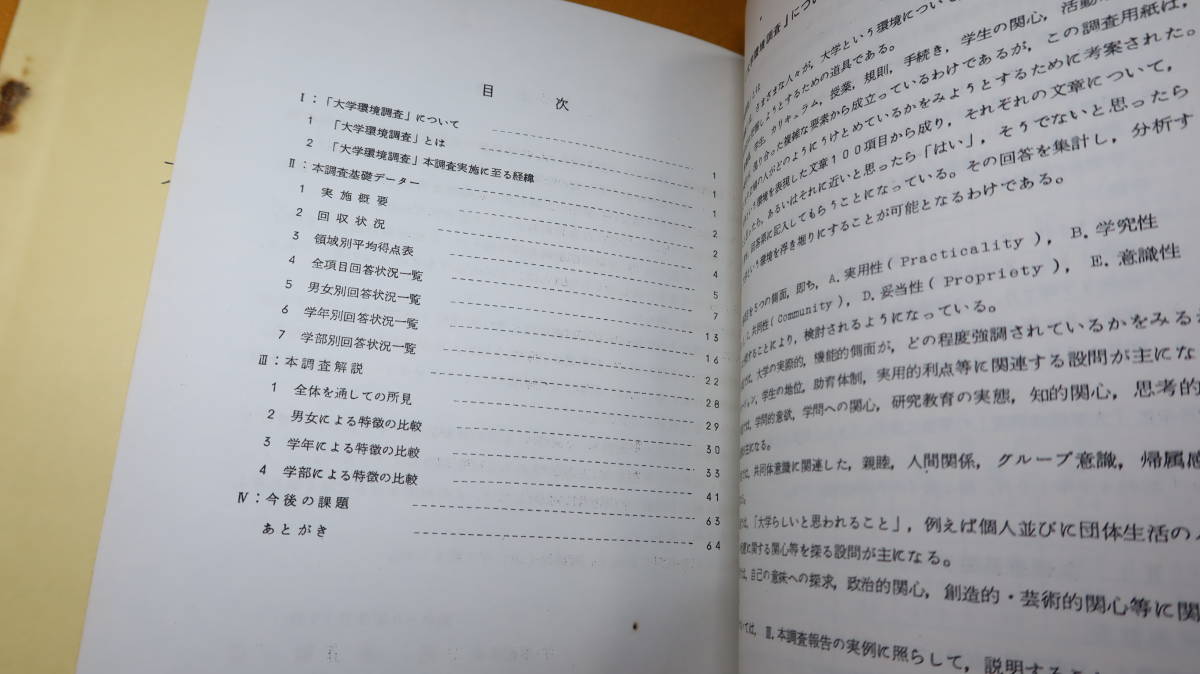 目　次
Ⅰ：「大学環境調査」について 1
1 「大学環境調査」とは 1
2 「大学環境調査」本調査実施に至る経緯 1
Ⅱ：本調査基礎データー 2
1 実施概要 2
2 回収状況 4
3 領域別平均得点表 5
4 全項目回答状況一覧 7
5 男女別回答状況一覧 13
6 学年別回答状況一覧 16
7 学部別回答状況一覧 22
Ⅲ：本調査解説 28
1 全体を通しての所見 29
2 男女による特徴の比較 30
3 学年による特徴の比較 33
4 学部による特徴の比較 41
Ⅳ：今後の課題 63
あとがき 64
さまざまな人々が，大学という環境につい
しようとするための道具である。
学生，カリキュラム，授業，規則，手続き，学生の関心，活動
り合った複雑な要素から成立っているわけであるが，この調査用紙は，
の人がどのようにうけとめているかをみようとするために考案された。
環境を表現した文章100項目から成り，それぞれの文章について，
ったら，あるいはそれに近いと思ったら「はい」，そうでないと思ったら
回答票に記入してもらうことになっている。その回答を集計し，分析す
という環境を浮き堀りにすることが可能となるわけである。
を5つの側面，即ち，A.実用性(Practicality)，B.学究性
共同性(Community)，D.妥当性(Propriety)，E.意識性
することにより，検討されるようになっている。
では，大学の実際的，機能的側面が，どの程度強調されているかをみる
学生の地位，助育体制，実用的利点等に関連する設問が主にな
では，学問的意欲，学問への関心，研究教育の実態，知的関心，思考的
主になる。
は，共同体意識に関連した，親睦，人間関係，グループ意識，帰属感
は，「大学らしいと思われること」，例えば個人並びに団体生活の
に関する関心等を探る設問が主になる。
は，自己の意味への探求，政治的関心，創造的・芸術的関心等に関
ては，Ⅲ.本調査報告の実例に照らして，説明する